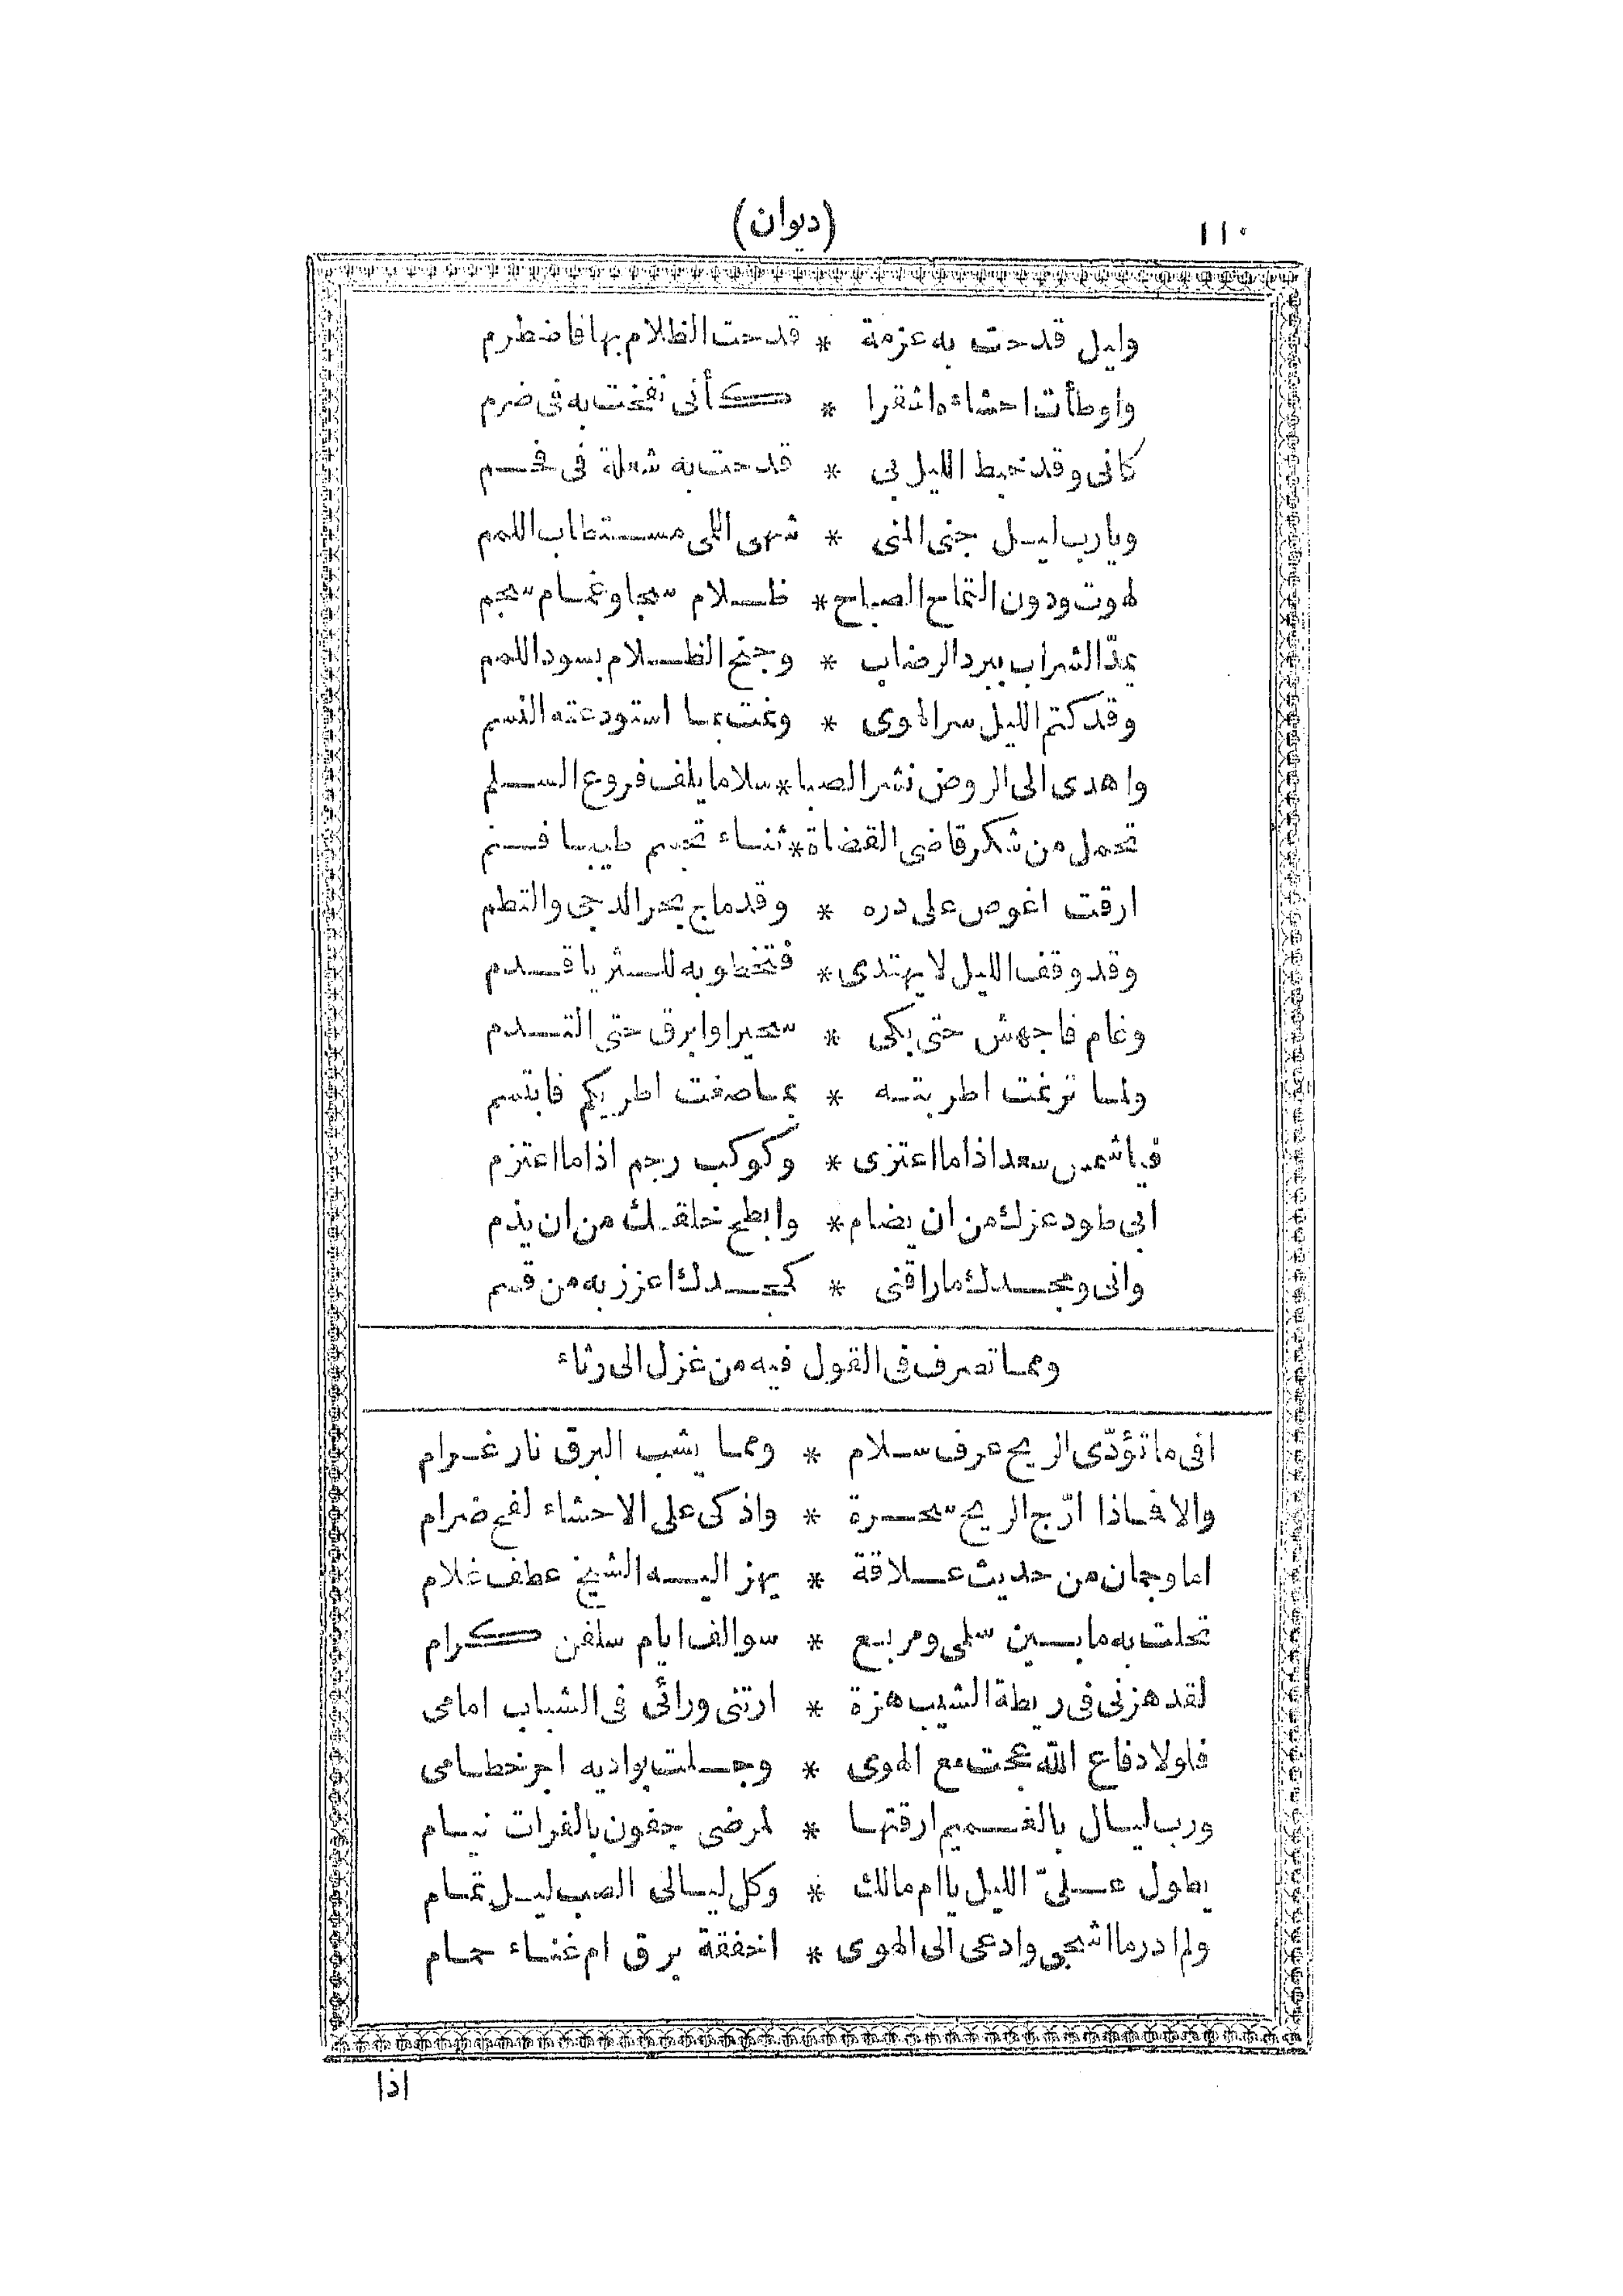 ١١٠
(ديوان)
وليل قدحت به عزمة * قدحت الظلام بها فاضطرم
واوطأت احشاءه اشقرا * كأنى نفخت به فى ضرم
كانى وقد خبط الليل بى * قدحت به شعلة فى فحم
ويارب ليل جنى المنى * شهى اللمى مستطاب اللمم
لهوت ودون التماح الصباح * ظلام سجا وغمام سجم
بمدّ الشراب ببرد الرضاب * وجنح الظلام بسود اللمم
وقد كتم الليل سر الهوى * ونمت بما استودعته النسم
واهدى الى الروض نشر الصبا * سلاما يلف فروع السلم
تحمل من شكر قاضى القضاة * ثناء تجسم طيبا فنم
ارقت اغوص على دره * وقد ماج بحر الدجى والتطم
وقد وقف الليل لا يهتدى * فتخطو به للثريا قدم
وغام فاجهش حتى بكى * سحيرا وابرق حتى التدم
ولما ترنمت اطربته * بما صغت اطريكم فابتسم
فيا شمس سعد اذا ما اعتزى * وكوكب رجم اذا ما اعتزم
ابى طود عزك من ان يضام * وابطح خلقك من ان يذم
وانى ومجدك ما راقنى * كمجدك اعزز به من قسم
ومما تصرف فى القول فيه من غزل الى رثاء
افى ما تؤدّى الريح عرف سلام * ومما يشب البرق نار غرام
والا فماذا ارّج الريح سحرة * واذكى على الاحشاء لفح ضرام
اما وجمان من حديث علاقة * يهز اليه الشيخ عطف غلام
تحلت به ما بين سلمى ومربع * سوالف ايام سلفن كرام
لقد هزنى فى ريطة الشيب هزة * ارتنى ورائى فى الشباب امامى
فلولا دفاع الله عجت مع الهوى * وجلت بواديه اجر خطامى
ورب ليال بالغميم ارقتها * لمرضى جفون بالفرات نيام
يطول علىّ الليل يا ام مالك * وكل ليالى الصب ليل تمام
ولم ادر ما اشجى وادعى الى الهوى * اخفقة برق ام غناء حمام
اذا